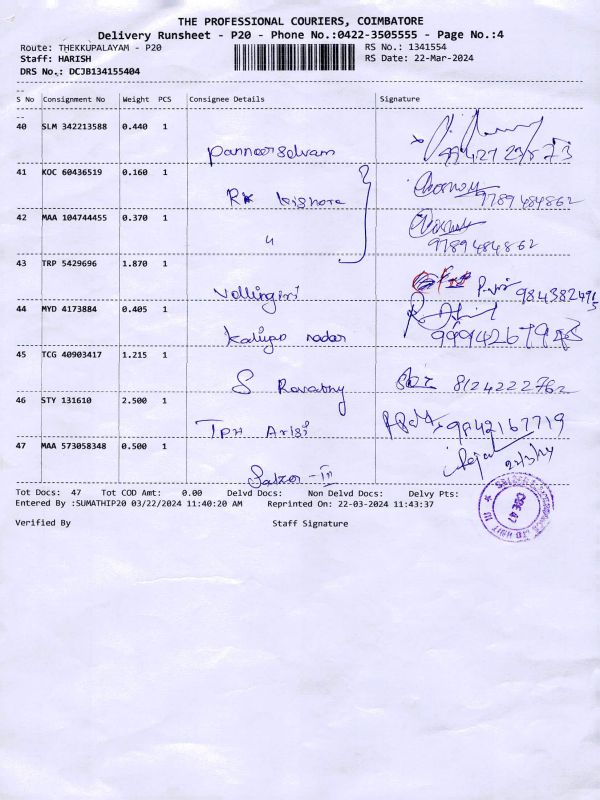 THE PROFESSIONAL COURIERS, COIMBATORE
Delivery Runsheet - P20 - Phone No.:0422-3505555 - Page No.:4
Route: THEKKUPALAYAM - P20
RS No.: 1341554
Staff: HARISH
RS Date: 22-Mar-2024
DRS No.: DCJB134155404
S No Consignment No Weight PCS Consignee Details Signature
40 SLM 342213588 0.440 1
Panneerselvam
41 KOC 60436519 0.160 1
kishore 9789484862
42 MAA 104744455 0.370 1
〃 9789484862
43 TRP 5429696 1.870 1
Vellingiri
44 MYD 4173884 0.405 1
nadar
45 TCG 40903417 1.215 1
S 8124222762
46 STY 131610 2.500 1
TPH Arisi 9842167719
47 MAA 573058348 0.500 1
Salzer - III 22/3/24
Tot Docs: 47 Tot COD Amt: 0.00 Delvd Docs: Non Delvd Docs: Delvy Pts:
Entered By :SUMATHIP20 03/22/2024 11:40:20 AM Reprinted On: 22-03-2024 11:43:37
Verified By Staff Signature
CBE 47